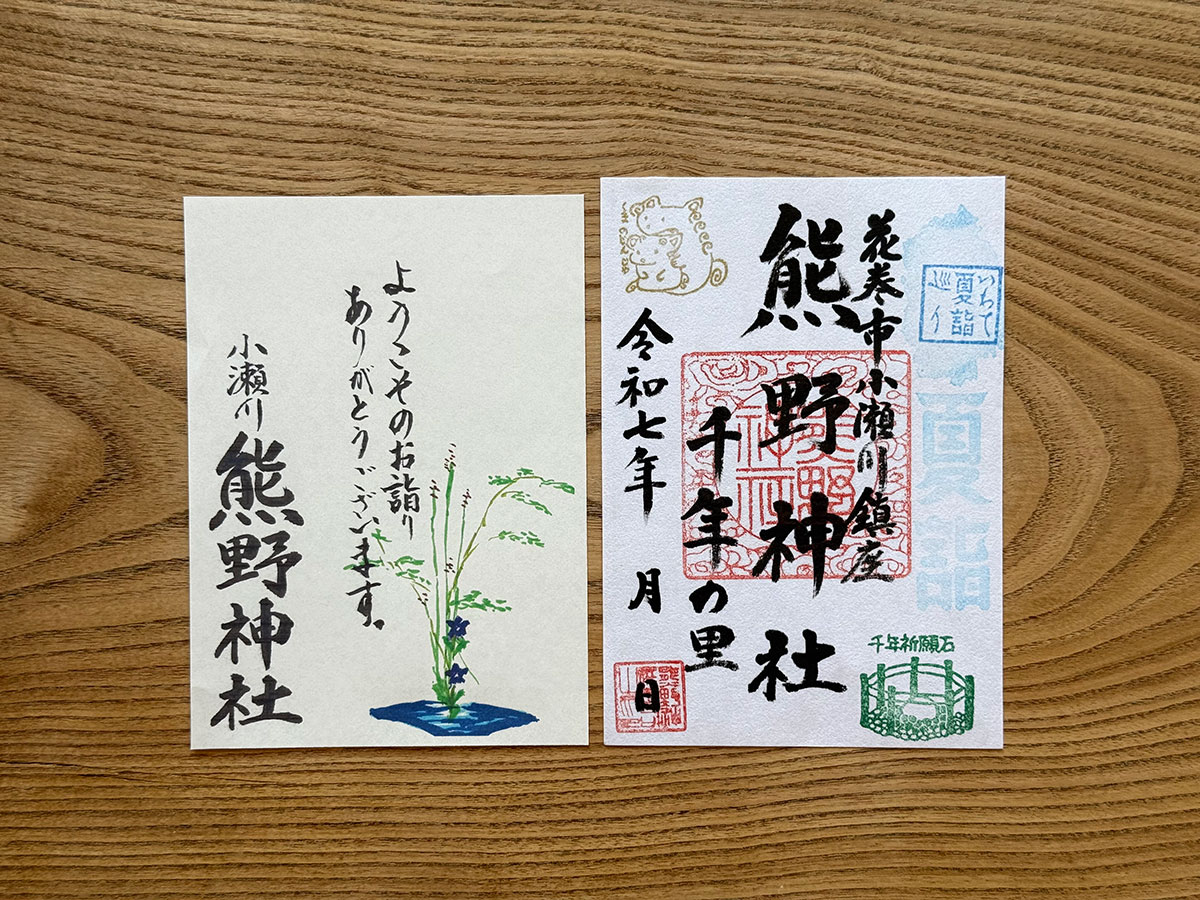 ようこそのお詣り
ありがとうございます。
小瀬川
熊野神社
いわて
夏詣
巡り
夏詣
花巻市小瀬川鎮座
熊野神社
千年の里
令和七年 月 日
千年祈願石